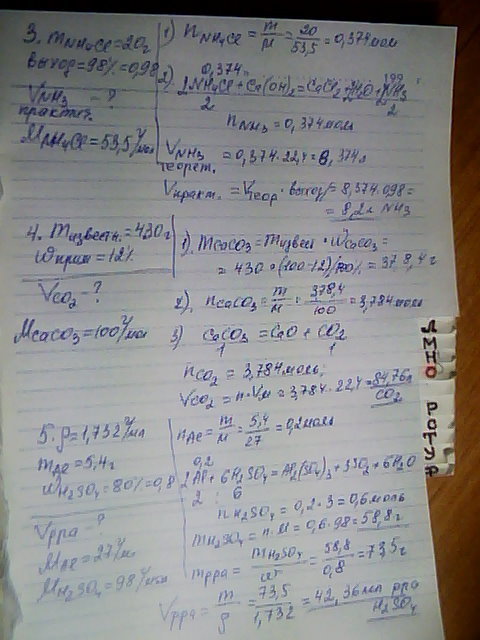 3. mNH4Cl = 20г
выход = 98% = 0,98
VNH3 практ. - ?
MNH4Cl = 53,5 г/мол
1) nNH4Cl = m/M = 20/53,5 = 0,374 мол
2) 0,374
2NH4Cl + Ca(OH)2 = CaCl2 + 2H2O + 2NH3
2 2
nNH3 = 0,374 моль
VNH3 теорет. = 0,374·22,4 = 8,374л
Vпракт. = Vтеор · выход = 8,374·0,98 =
= 8,2л NH3
4. mизвестн. = 430г
wприм = 12%
VCO2 = ?
MCaCO3 = 100 г/мол
1) mCaCO3 = mизвест · wCaCO3 =
= 430 · (100-12)/100% = 378,4г
2) nCaCO3 = m/M = 378,4/100 = 3,784 моль
3) CaCO3 = CaO + CO2
1 1
nCO2 = 3,784 моль;
VCO2 = n·Vм = 3,784·22,4 = 84,76л CO2
5. ρ = 1,732 г/мл
mAl = 5,4г
wH2SO4 = 80% = 0,8
Vрра - ?
MAl = 27 г/м
MH2SO4 = 98 г/мол
nAl = m/M = 5,4/27 = 0,2 моль
0,2
2Al + 6H2SO4 = Al2(SO4)3 + 3SO2 + 6H2O
2 : 6
nH2SO4 = 0,2·3 = 0,6 моль
mH2SO4 = n·M = 0,6·98 = 58,8г
mрра = mH2SO4/w = 58,8/0,8 = 73,5г
Vрра = m/ρ = 73,5/1,732 = 42,36мл рра H2SO4